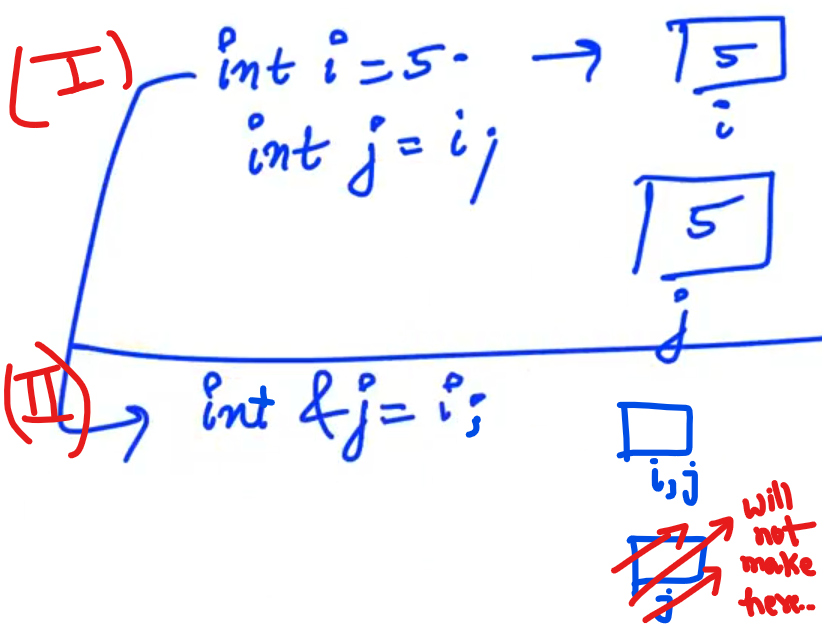 (I) int i = 5. → 5
i
int j = i;
5
j
(II) → int &j = i;
i, j
will
not
make
j here..